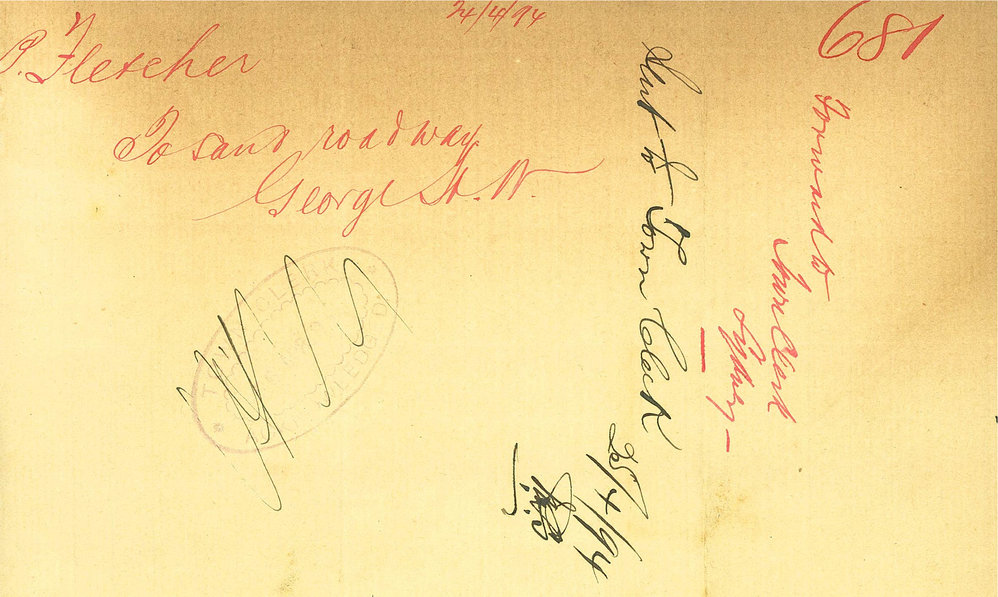 24/4/94
681
P. Fletcher
To sand roadway
George St. W
Forward to
Town Clerk
Sydney
Sent to Town Clerk
25/4/94
TOWN CLERK
GLEBE